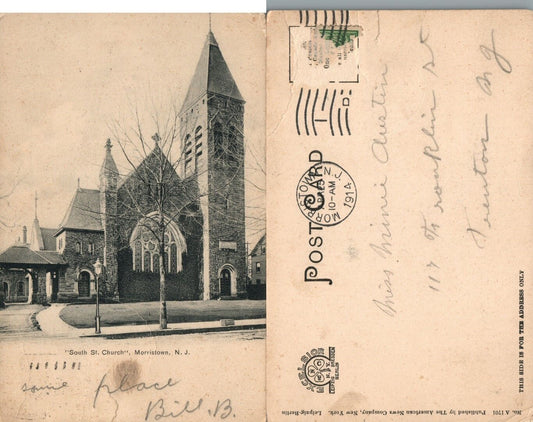 "South St. Church", Morristown, N. J.
same place
Bill B.
POST CARD
MORRISTOWN, N.J.
10-AM
1914
Miss Minnie Austin
117 Franklin St
Trenton N J
THIS SIDE IS FOR THE ADDRESS ONLY
EXCELSIOR
N.Y.
LEIPZIG
BERLIN
DRESDEN
No. A 1701 Published by The American News Company, New York. Leipzig-Berlin